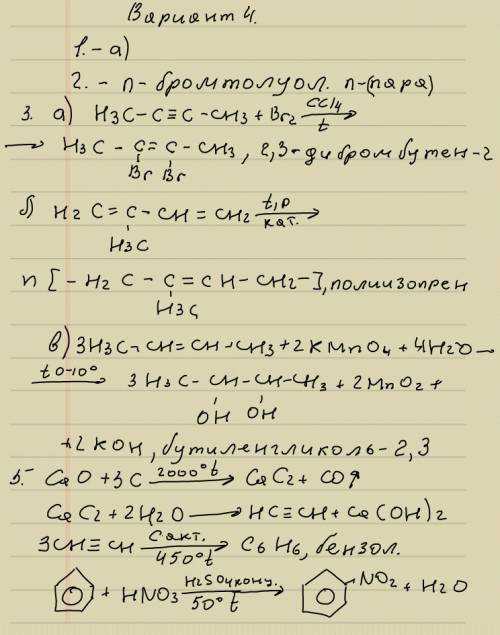 Вариант 4.
1. - а)
2. - п - бромтолуол. п-(пара)
3. а) H3C-C≡C-CH3+Br2 CCl4 t →
→ H3C - C = C - CH3, 2,3-дибромбутен-2
Br Br
б) H2C=C-CH=CH2 t,p кат. →
H3C
n [-H2C-C=CH-CH2-], полиизопрен
H3C
в) 3H3C-CH=CH-CH3+2KMnO4+4H2O→
t 0-10° → 3H3C-CH-CH-CH3+2MnO2+
OH OH
+2KOH, бутиленгликоль-2,3
5.- CaO+3C 2000°t → CaC2+CO↑
CaC2+2H2O → HC≡CH+Ca(OH)2
3CH≡CH Cакт. 450°t → C6H6, бензол.
+ HNO3 H2SO4конц. 50°t → NO2 + H2O